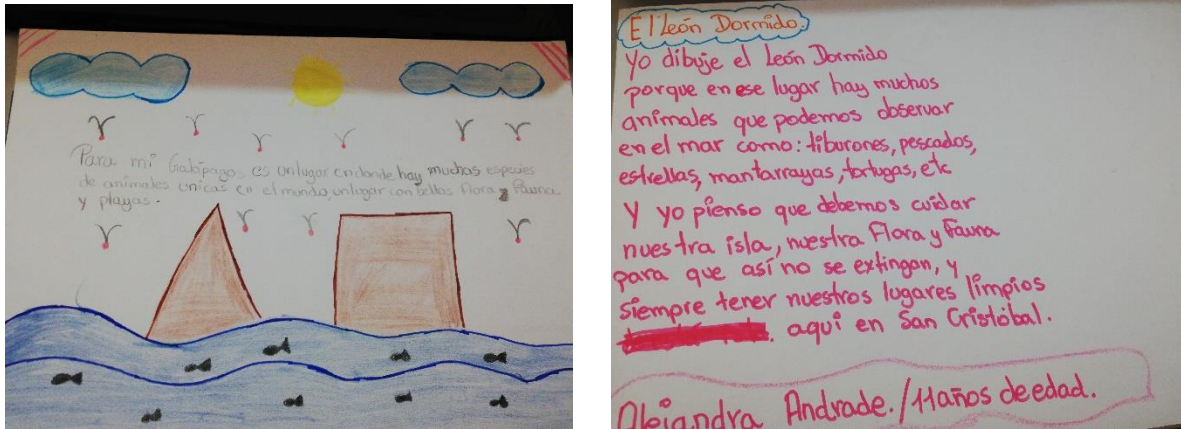 Para mi Galápagos es un lugar en donde hay muchas especies
de animales unicas en el mundo, un lugar con bellas flora y fauna
y playas.
El León Dormido.
Yo dibuje el León Dormido
porque en ese lugar hay muchos
animales que podemos observar
en el mar como: tiburones, pescados,
estrellas, mantarrayas, tortugas, etc
Y yo pienso que debemos cuidar
nuestra isla, nuestra Flora y Fauna
para que así no se extingan, y
siempre tener nuestros lugares limpios
aquí en San Cristóbal.
Alejandra Andrade. / 11 años de edad.